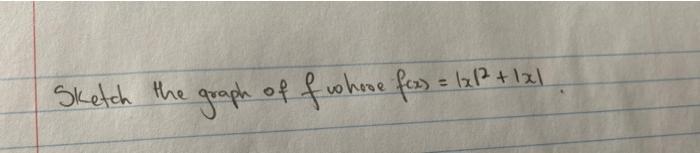 Sketch the graph of f whose f(x) = |x|² + |x|.